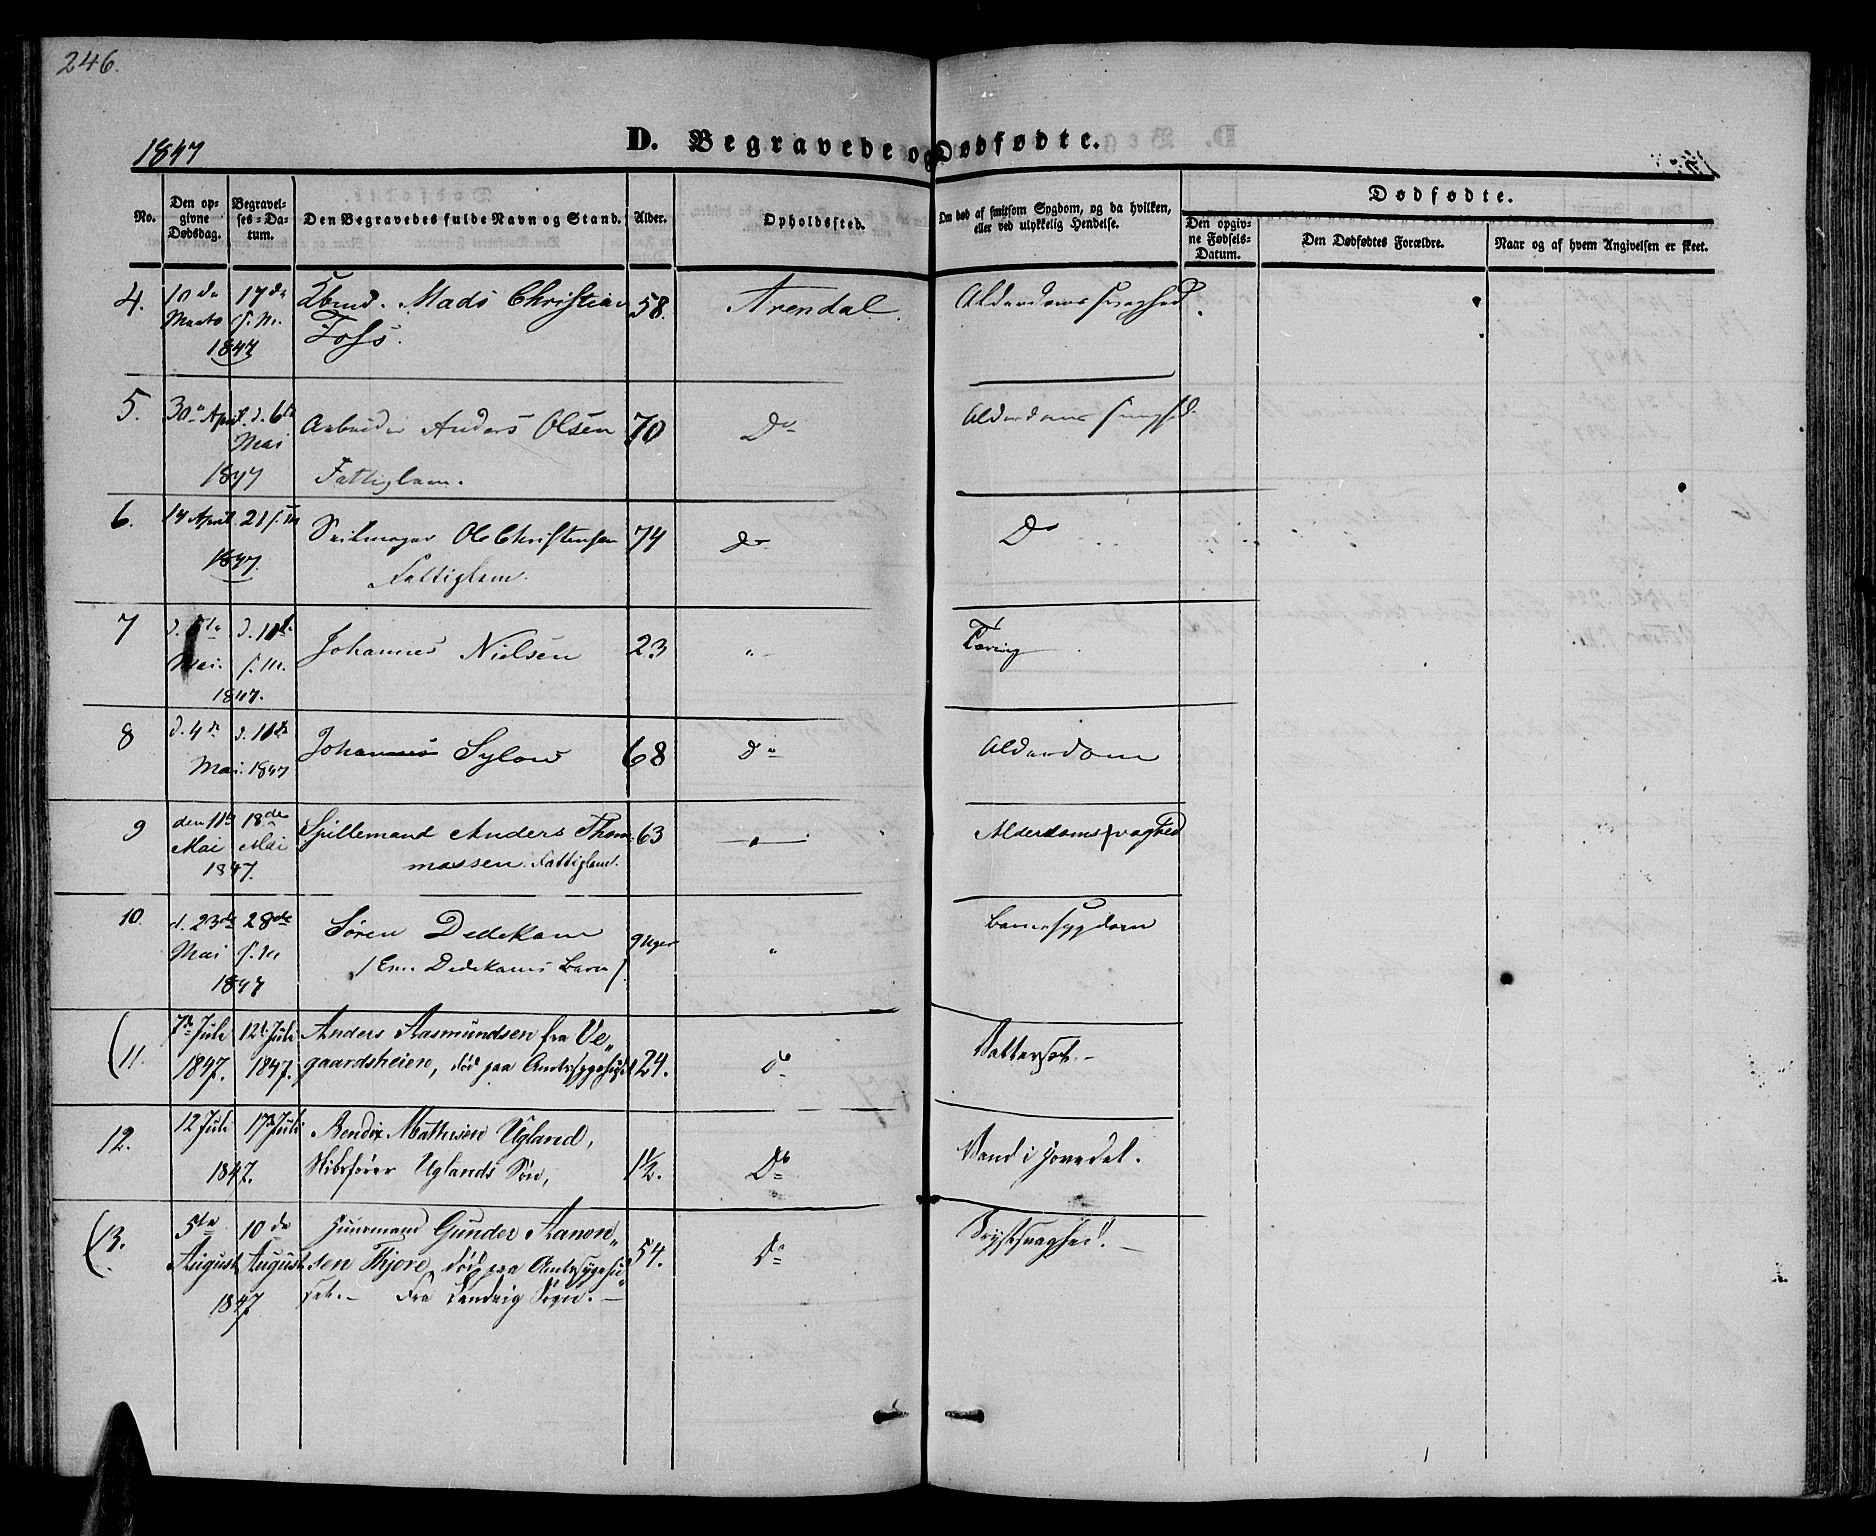 246.
1847
D. Begravede og Dødfødte.
No.
Den opgivne Dødsdag.
Begravelses-Datum.
Den Begravedes fulde Navn og Stand.
Alder.
Opholdssted.
Om død af smitsom Sygdom, og da hvilken, eller ved ulykkelig Hendelse.
Dødfødte.
Den opgivne Fødsels-Datum.
Den Dødfødtes Forældre.
Naar og af hvem Angivelsen er skeet.
4. 10de 17de Mads Christian 58. Arendal. Alderdomssvaghed.
Marts s. M. Foss.
1847
5. 30te April d. 6te Arbeider Anders Olsen 70 Do Alderdomssvaghd.
Mai
1847 Fattiglem.
6. 14 April 21 s. M Seilmager Ole Christensen 74 do Do
1847. Fattiglem.
7 d. 5te d. 11te Johannes Nielsen 23 " Tæring
Mai. s. M.
1847.
8 d. 4de d. 11te Johannes Sylow 68 do Alderdom
Mai. 1847
9 den 11te 18de Spillemand Anders Thom 63 " Alderdomssvaghed
Mai Mai massen. Fattiglem.
1847.
10. d. 23de 28de Søren Dedekam 9 Uger " Barnesygdom
Mai s. M / Em. Dedekams Barn /
1847
11. 7de Juli 12te Juli Anders Aasmundsen fra Ve„ 24. do Vattersot.
1847. 1847. gaardsheien, død paa Amtssygehuset
12. 12 Juli 17de Juli Bendix Mathisen Ugland, 1½. Do Vand i Hovedet.
1847. Skibsfører Uglands Søn,
13. 5te 10de Huusmand Gunder Aanon„ 54. Do Brystsvaghed.
August August sen Fhjore, død paa Amtssygehu„
1847 set. Fra Landvig Sogn.